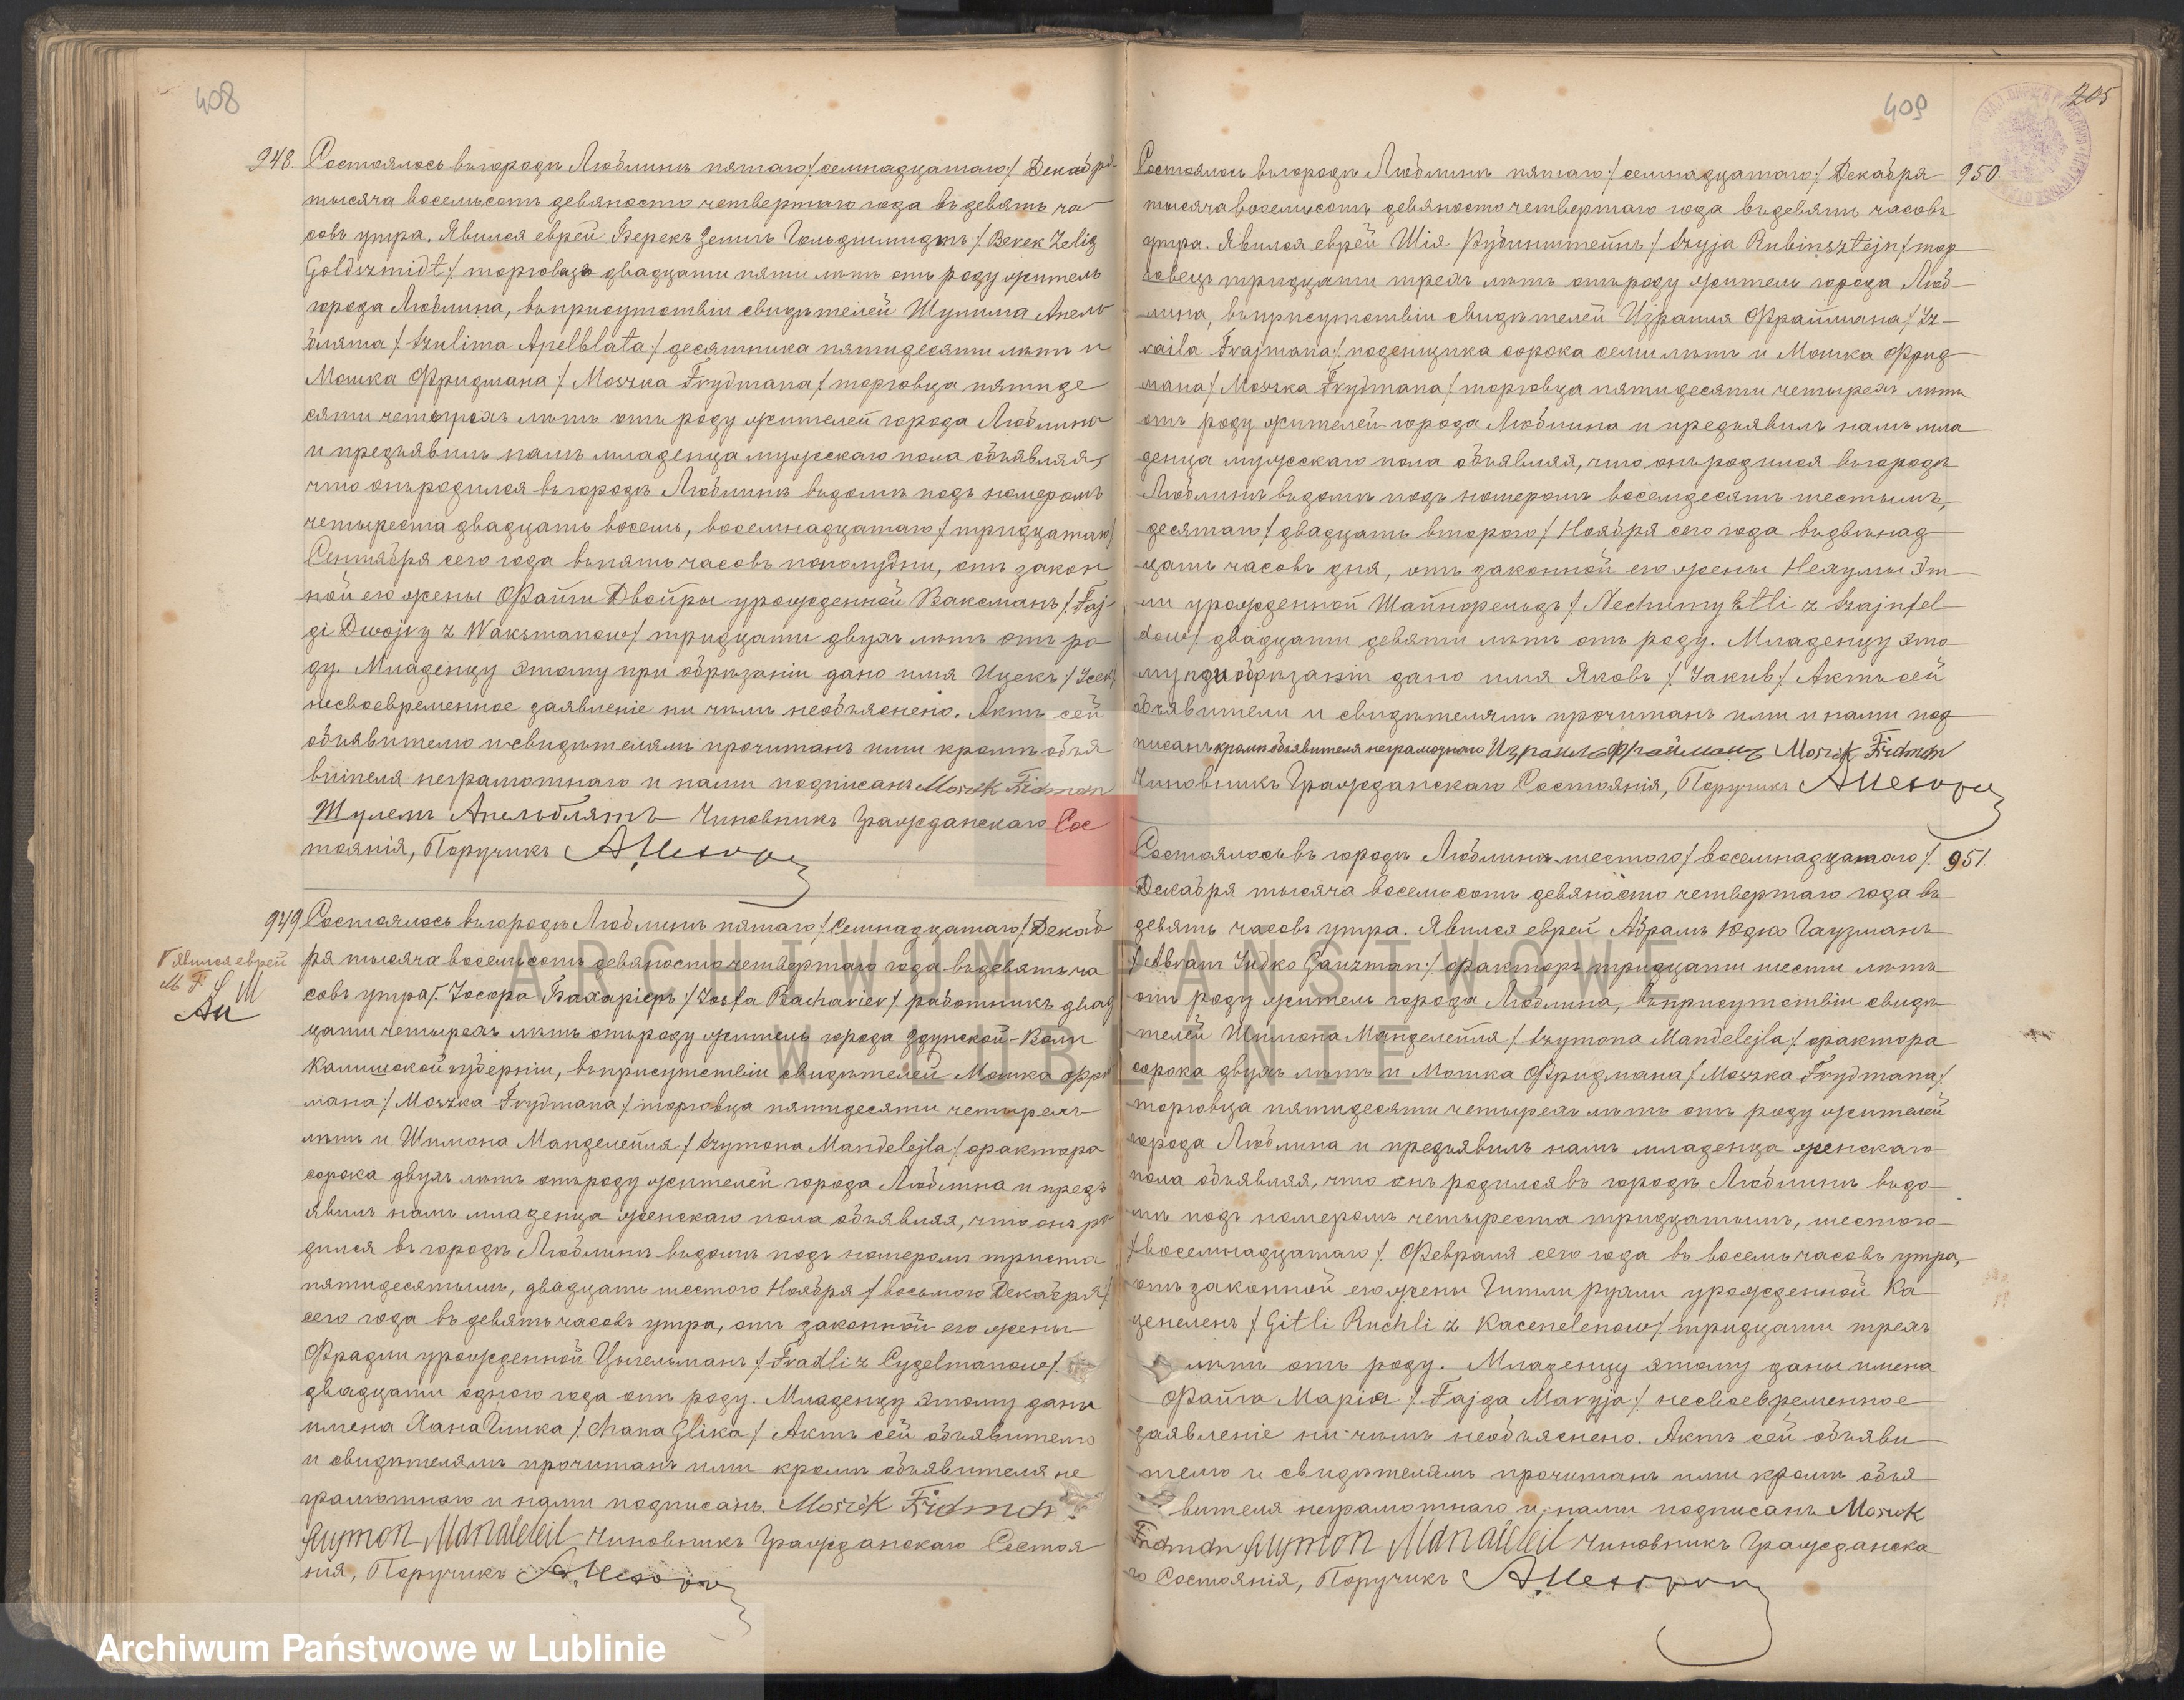 408
948. Состоялось въ городѣ Люблинѣ пятаго /:семнадцатаго:/ Декабря
тысяча восемьсотъ девяносто четвертаго года въ девять ча
совъ утра. Явился еврей Берекъ Зелигъ Гольдшмидтъ /:Berek Zelig
Goldszmidt:/ торговецъ двадцати пяти лѣтъ отъ роду житель
города Люблина, въ присутствіи свидѣтелей Шулима Апель
блята /:Szulima Apelblata:/ десятника пятидесяти лѣтъ и
Мошка Фридмана /:Moszka Frydmana/ торговца пятиде
сяти четырехъ лѣтъ отъ роду жителей города Люблина
и предъявилъ намъ младенца мужескаго пола объявляя,
что онъ родился въ городѣ Люблинѣ въ домѣ подъ номеромъ
четыреста двадцать восемь, восемнадцатаго /:тридцатаго/
Сентября сего года въ пять часовъ пополудни, отъ закон
ной его жены Файги Двойры урожденной Ваксманъ /:Faj-
gi Dwojry z Waksmanow/ тридцати двухъ лѣтъ отъ ро
ду. Младенцу этому при обрѣзаніи дано имя Ицекъ /:Icek/
несвоевременное заявленіе ни чѣмъ необъяснено. Актъ сей
объявителю и свидѣтелямъ прочитанъ ими кромѣ объя
вителя неграмотнаго и нами подписанъ Moszek Fridman
Шулемъ Апельблятъ Чиновникъ Гражданскаго Сос
тоянія, Поручикъ
949. Состоялось въ городѣ Люблинѣ пятаго /:Семнадцатаго/ Декаб
Г явился еврей
ря тысяча восемьсотъ девяносто четвертаго года въ девять ча
М. F. S. M
совъ утра Г. Іосефа Бахаріеръ /:Josfa Bacharier/ работникъ двад
цати четырехъ лѣтъ отъ роду житель города Здунской-Воли
Калишской губерніи, въ присутствіи свидѣтелей Мошка Фрид
мана /:Moszka Frydmana:/ торговца пятидесяти четырехъ
лѣтъ и Шимона Манделейля /:Szymona Mandelejla:/ фактора
сорока двухъ лѣтъ отъ роду жителей города Люблина и предъ
явилъ намъ младенца женскаго пола объявляя, что онъ ро
дился въ городѣ Люблинѣ въ домѣ подъ номеромъ триста
пятидесятымъ, двадцать шестого Ноября /:восьмого Декабря:/
сего года въ девять часовъ утра, отъ законной его жены
Фрадли урожденной Цыгельманъ /:Fradli z Cygelmanow/.
двадцати одного года отъ роду. Младенцу этому даны
имена Хана Глика /:Chana Glika:/ Актъ сей объявителю
и свидѣтелямъ прочитанъ ими кромѣ объявителя не
грамотнаго и нами подписанъ. Moszek Fridman
Szymon Mandeleil Чиновникъ Гражданскаго Состоя
нія, Поручикъ
409
205
Состоялось въ городѣ Люблинѣ пятаго /:семнадцатаго:/ Декабря 950.
тысяча восемьсотъ девяносто четвертаго года въ девять часовъ
утра. Явился еврей Шія Рубинштейнъ /:Szyja Rubinsztejn/ тор
говецъ тридцати трехъ лѣтъ отъ роду житель города Люб
лина, въ присутствіи свидѣтелей Израиля Фраймана /:Iz-
raila Frajmana:/ поденщика сорока семи лѣтъ и Мошка Фрид
мана /:Moszka Frydmana/ торговца пятидесяти четырехъ лѣтъ
отъ роду жителей города Люблина и предъявилъ намъ мла
денца мужескаго пола объявляя, что онъ родился въ городѣ
Люблинѣ въ домѣ подъ номеромъ восемдесятъ шестымъ,
десятаго /:двадцать второго/ Ноября сего года въ двѣнад
цать часовъ дня, отъ законной его жены Нехумы Эт
ли урожденной Шайнфельдъ /:Nechumy Etli z Szajnfel-
dow/ двадцати девяти лѣтъ отъ роду. Младенцу это
му при обрѣзаніи дано имя Яковъ /:Jakub/ Актъ сей
объявители и свидѣтелямъ прочитанъ ими и нами под
писанъ кромѣ объявителя неграмотнаго Израиль Фрайманъ Moszek Fridman
Чиновникъ Гражданскаго Состоянія, Поручикъ
Состоялось въ городѣ Люблинѣ шестого /:восемнадцатаго/. 951.
Декабря тысяча восемьсотъ девяносто четвертаго года въ
девять часовъ утра. Явился еврей Абрамъ Юдко Гаузманъ
/:Abram Judko Gauzman:/ факторъ тридцати шести лѣтъ
отъ роду житель города Люблина, въ присутствіи свидѣ
телей Шимона Манделейля /:Szymona Mandelejla:/ фактора
сорока двухъ лѣтъ и Мошка Фридмана /:Moszka Frydmana:/
торговца пятидесяти четырехъ лѣтъ отъ роду жителей
города Люблина и предъявилъ намъ младенца женскаго
пола объявляя, что онъ родился въ городѣ Люблинѣ въ до
мѣ подъ номеромъ четыреста тридцатымъ, шестого
/:восемнадцатаго/. Февраля сего года въ восемь часовъ утра,
отъ законной его жены Гитли Рухли урожденной Ка
ценеленъ /:Gitli Ruchli z Kacenelenow/. тридцати трехъ
лѣтъ отъ роду. Младенцу этому даны имена
Файга Марія /:Fajga Maryja:/ несвоевременное
заявленіе ни чѣмъ необъяснено. Актъ сей объяви
телю и свидѣтелямъ прочитанъ ими кромѣ объя
вителя неграмотнаго и нами подписанъ Moszek
Fridman Szymon Mandeleil Чиновникъ Гражданска
го Состоянія, Поручикъ
ARCHIWUM PAŃSTWOWE
W LUBLINIE
Archiwum Państwowe w Lublinie